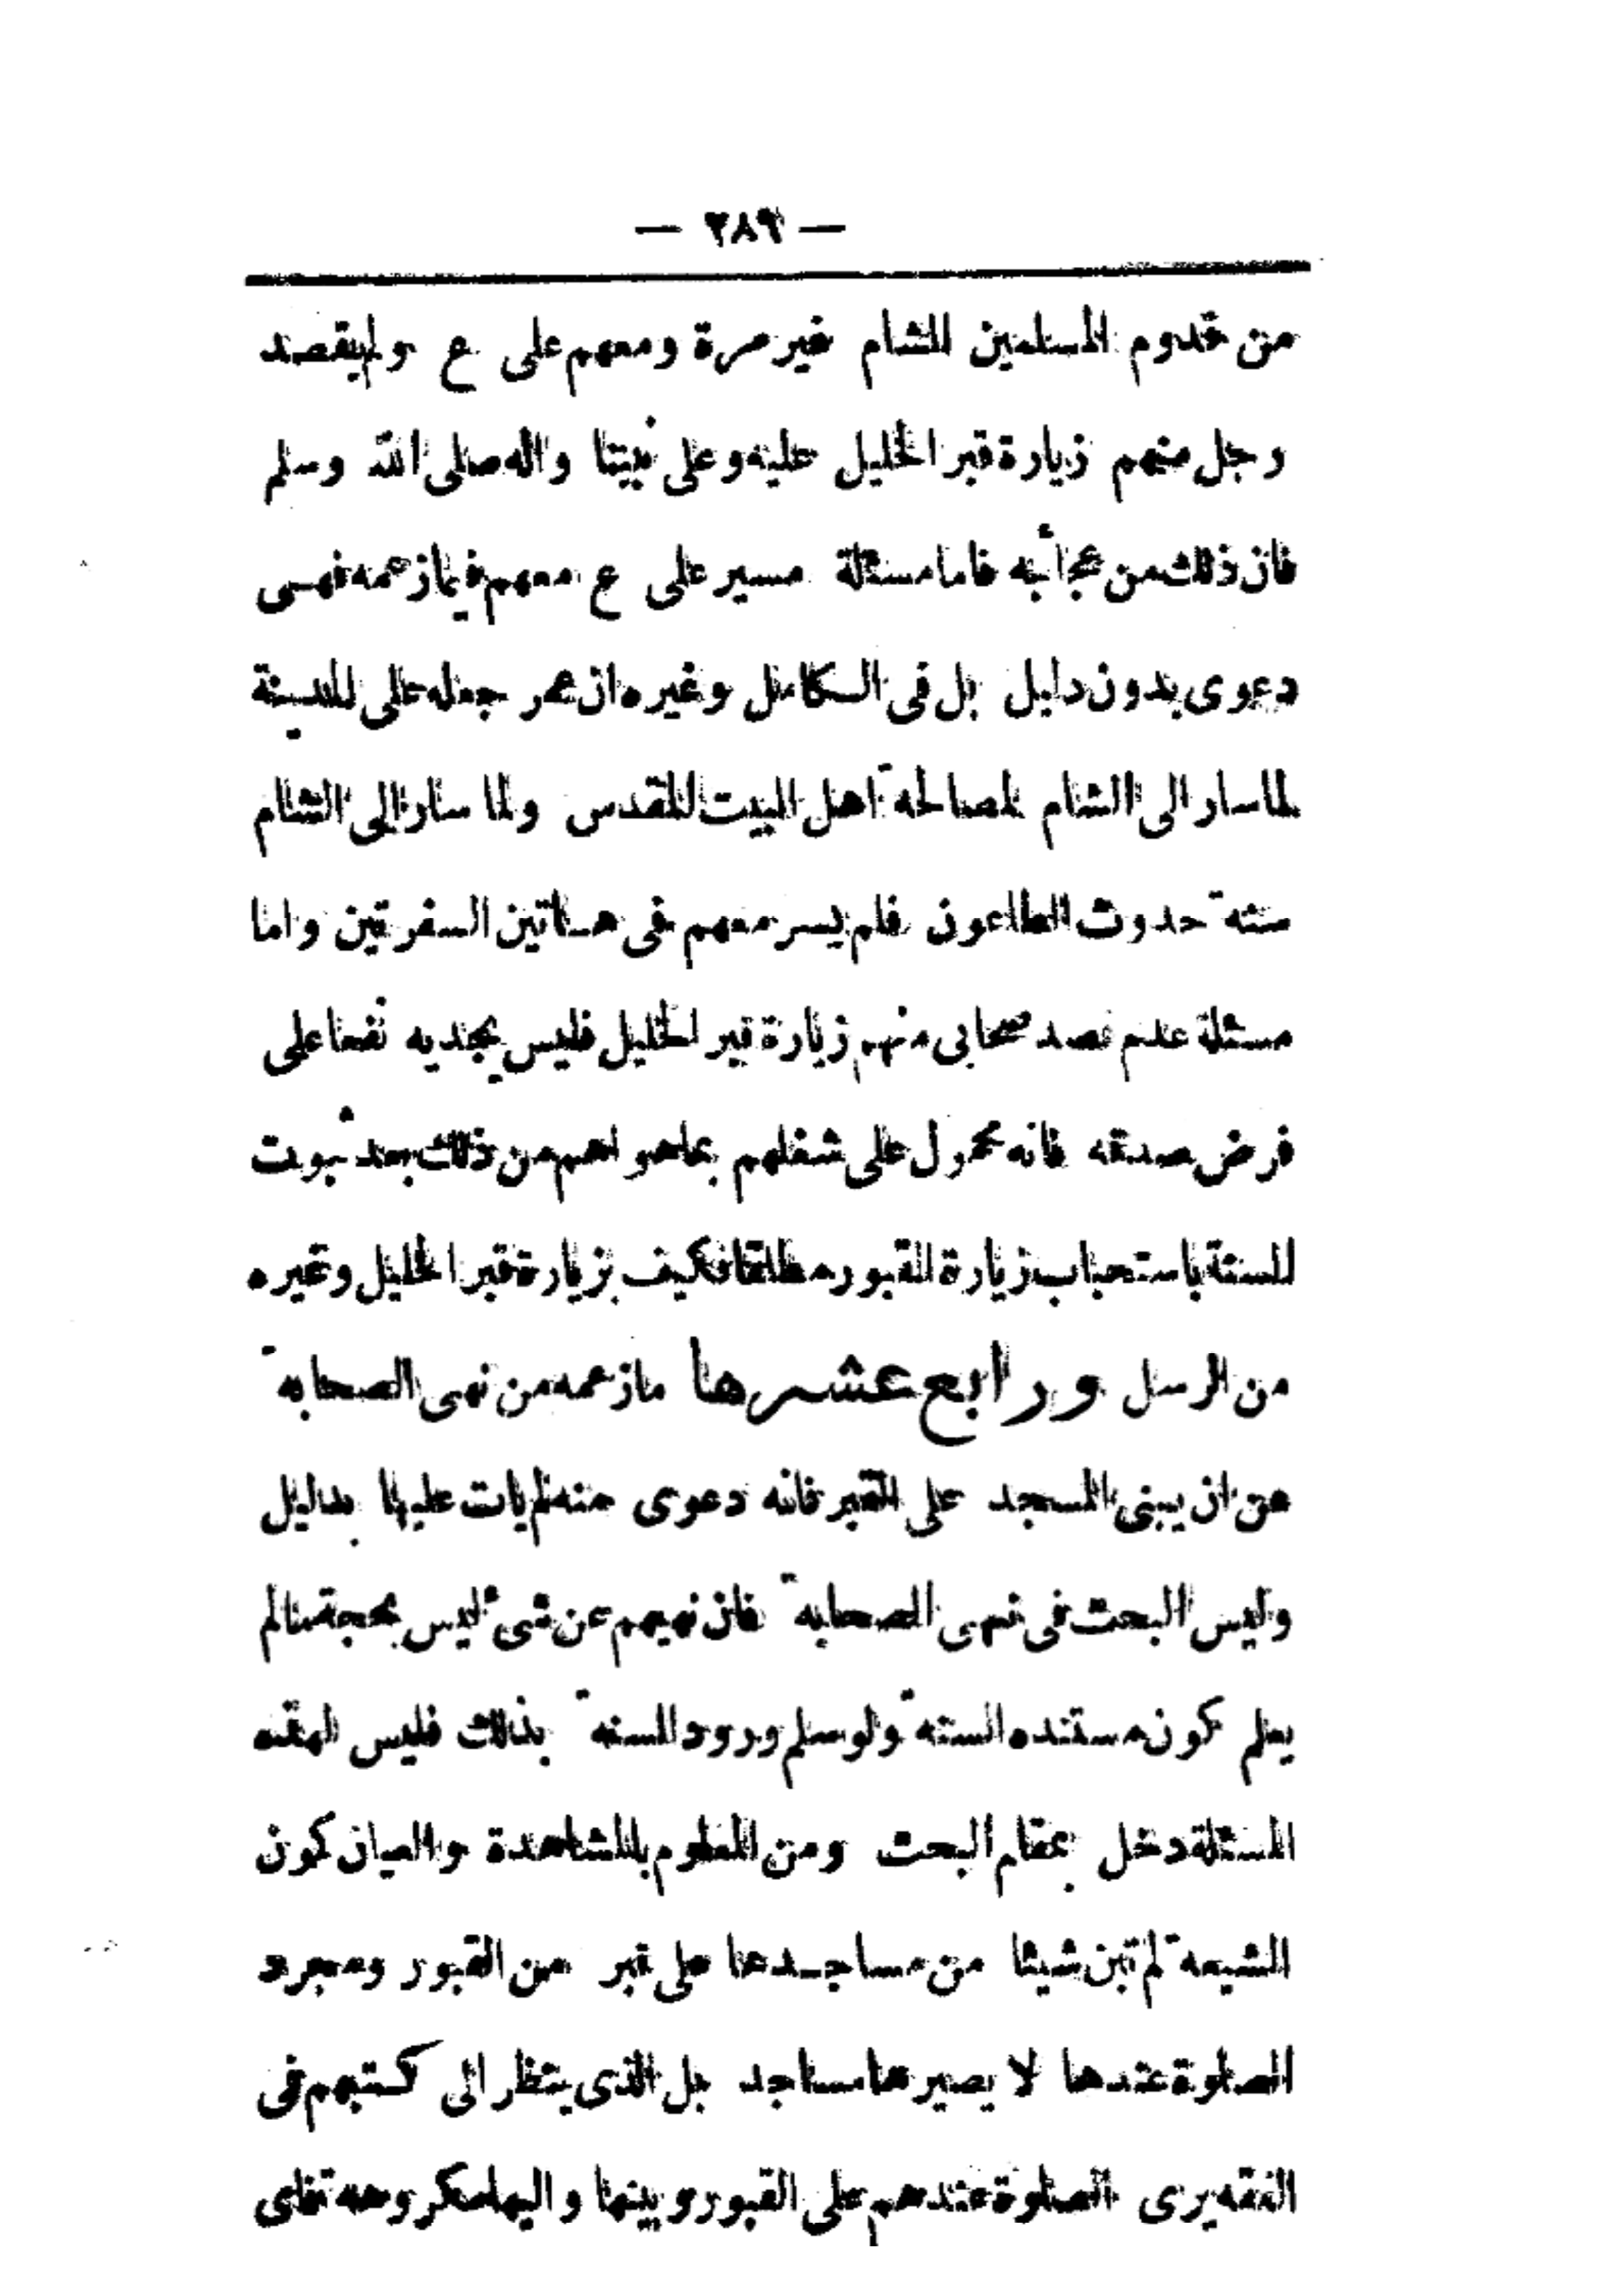 — ٢٨٩ —
من قدوم المسلمين للشام غير مرة ومعهم على ع ولم يقصد
رجل منهم زيارة قبر الخليل عليه وعلى نبينا واله صلى الله وسلم
فان ذلك من عجائبه فاما مسئلة مسير على ع معهم فيما زعمه فهى
دعوى بدون دليل بل فى الكامل وغيره ان عمر جعله على المدينة
لما سار الى الشام لمصالحة اهل البيت المقدس ولما سار الى الشام
سنة حدوث الطاعون فلم يسر معهم فى هاتين السفرتين واما
مسئلة عدم قصد صحابى منهم زيارة قبر الخليل فليس يجديه نفعا على
فرض صدقه فانه محمول على شغلهم بما هو اهم من ذلك بعد ثبوت
السنة باستحباب زيارة القبور مطلقا فكيف بزيارة قبر الخليل وغيره
من الرسل ورابع عشرها ما زعمه من نهى الصحابة
عن ان يبنى المسجد على القبر فانه دعوى منه لم يات عليها بدليل
وليس البحث فى نهى الصحابة فان نهيهم عن شىء ليس بحجة ما لم
يعلم كون مستنده السنة ولو سلم ورود السنة بذلك فليس لهذه
المسئلة دخل بمقام البحث ومن المعلوم بالمشاهدة والعيان كون
الشيعة لم تبن شيئا من مساجدها على قبر من القبور ومجرد
الصلوة عندها لا يصيرها مساجد بل الذى ينظر الى كتبهم فى
الفقه يرى الصلوة عندهم على القبور وبينها واليها مكروهة فاى